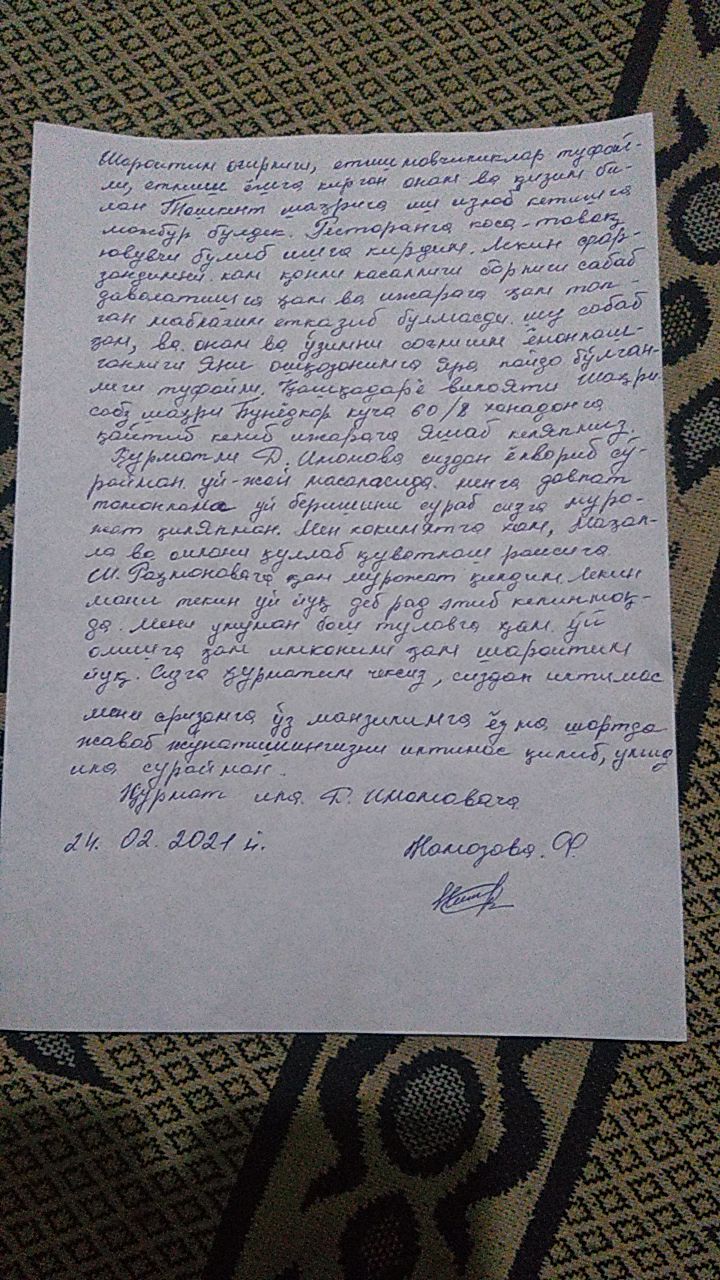 Шароитим оғирлиги, етишмовчиликлар туфай-
ли, етмиш ёшга кирган онам ва қизим би-
лан Тошкент шаҳрига иш излаб кетишга
мажбур булдек. Ресторанга коса-товоқ
ювувчи булиб ишга кирдим. Лекин фар-
зандимни кам қонли касаллиги борлиги сабаб
даволатишга ҳам ва ижарага ҳам топ-
ган маблағим етказиб булмасди. шу сабаб
ҳам, ва онам ва ўзимни соғлиғим ёмонлаш-
ганлиги яни ошқозонимга яра пайдо бўлган-
лиги туфайли. Қашқадарё вилояти Шаҳри-
сабз шаҳри Бунёдкор куча 60/8 хонадонга
қайтиб келиб ижарага яшаб келяпмиз.
Ҳурматли Д. Имомова сиздан ёлвориб сў-
райман уй-жой масаласида менга давлат
томонлама уй беришини сураб сизга муро-
жат қиляпман. Мен хокимятга хам, Маҳал-
ла ва оилани қуллаб қуватлаш раисига
Ш. Раҳмоновага ҳам мурожат қилдим. Лекин
мани текин уй йуқ деб рад этиб келинмоқ-
да. Мени умуман бош туловга ҳам уй
олишга ҳам имконим ҳам шароитим
йуқ. Сизга ҳурматим чексиз, сиздан илтимос
мени аризамга ўз манзилимга ёзма шартда
жавоб жунатишингизни илтимос қилиб, умид
ила сурайман.
Ҳурмат ила Д. Имомовага
24. 02. 2021 й. Намозова. Ф.